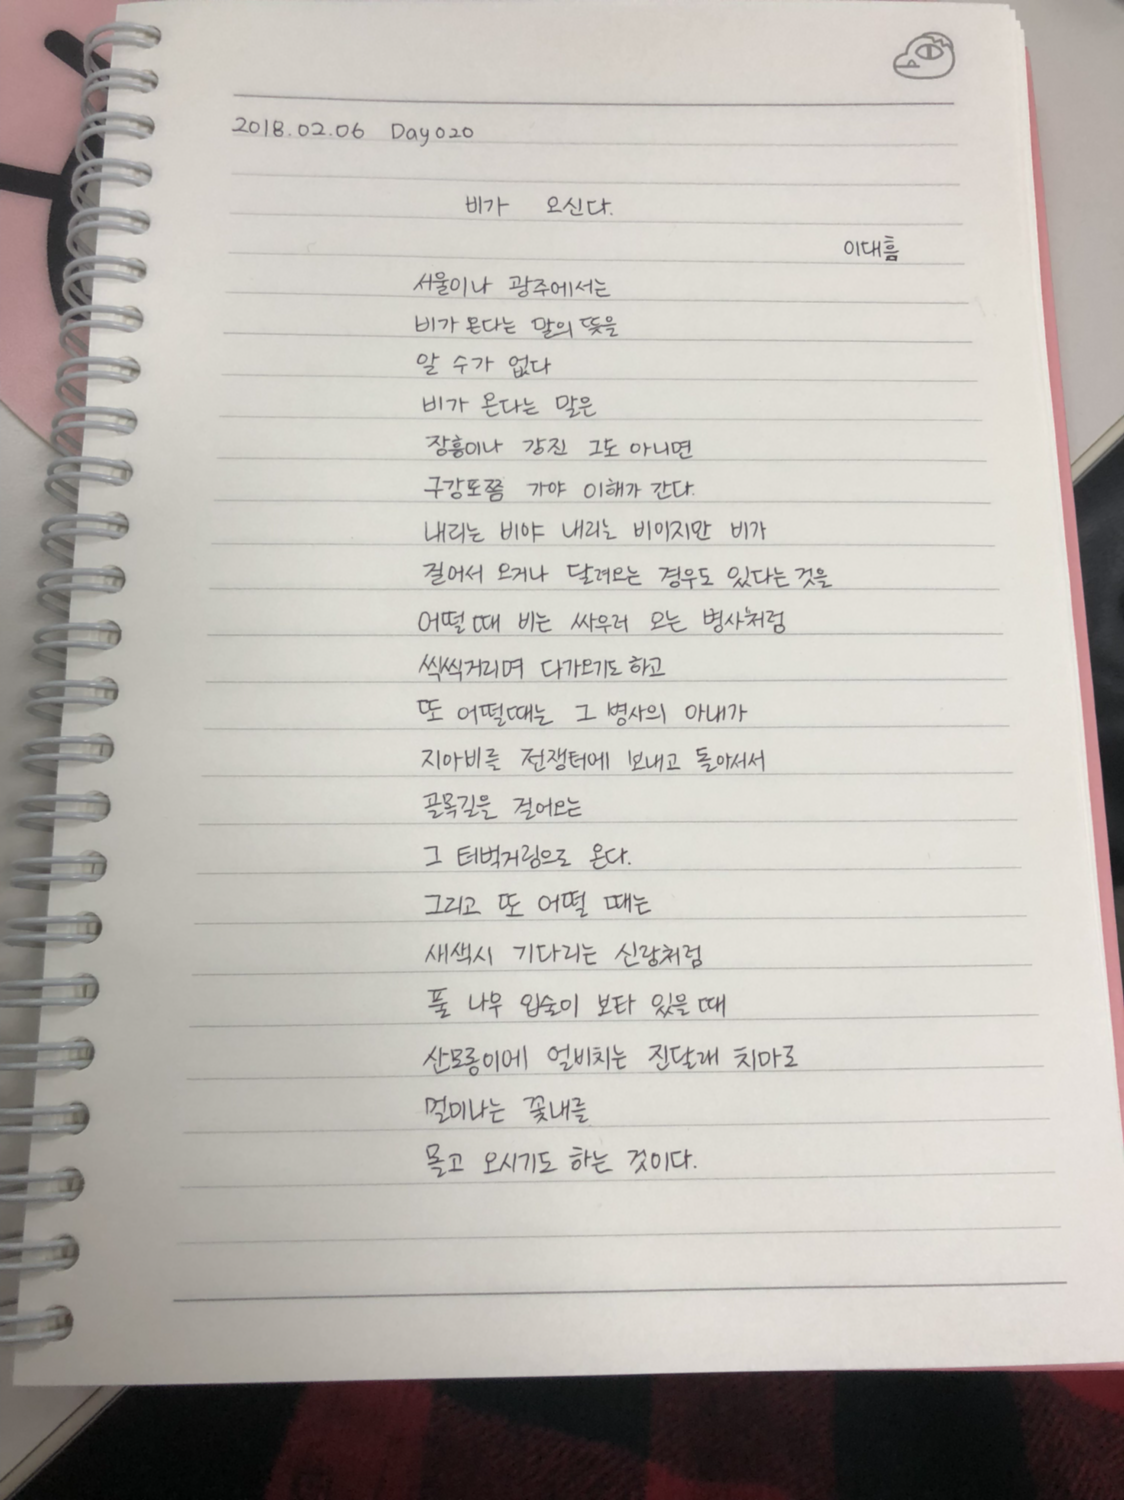 2018.02.06 Day020
비가 오신다.
이대흠
서울이나 광주에서는
비가 온다는 말의 뜻을
알 수가 없다
비가 온다는 말은
장흥이나 강진 그도 아니면
구강포쯤 가야 이해가 간다.
내리는 비야 내리는 비이지만 비가
걸어서 오거나 달려오는 경우도 있다는 것을
어떨 때 비는 싸우러 오는 병사처럼
씩씩거리며 다가오기도 하고
또 어떨때는 그 병사의 아내가
지아비를 전쟁터에 보내고 돌아서서
골목길을 걸어오는
그 터벅거림으로 온다.
그리고 또 어떨 때는
새색시 기다리는 신랑처럼
풀 나무 입술이 보타 있을 때
산모롱이에 얼비치는 진달래 치마로
멀미나는 꽃내를
몰고 오시기도 하는 것이다.